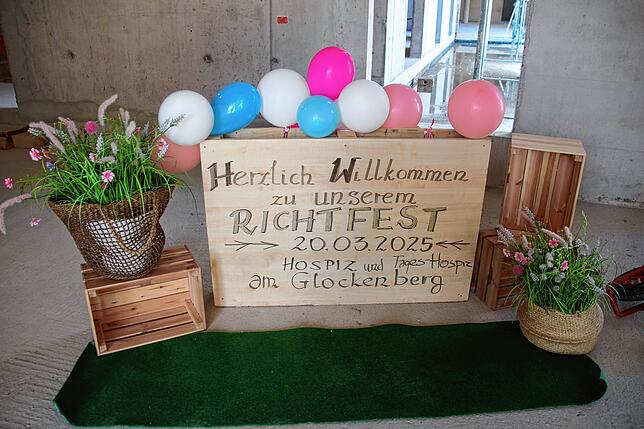 Herzlich Willkommen
zu unserem
RICHTFEST
20.03.2025
Hospiz und Tages-Hospiz
am Glockenberg